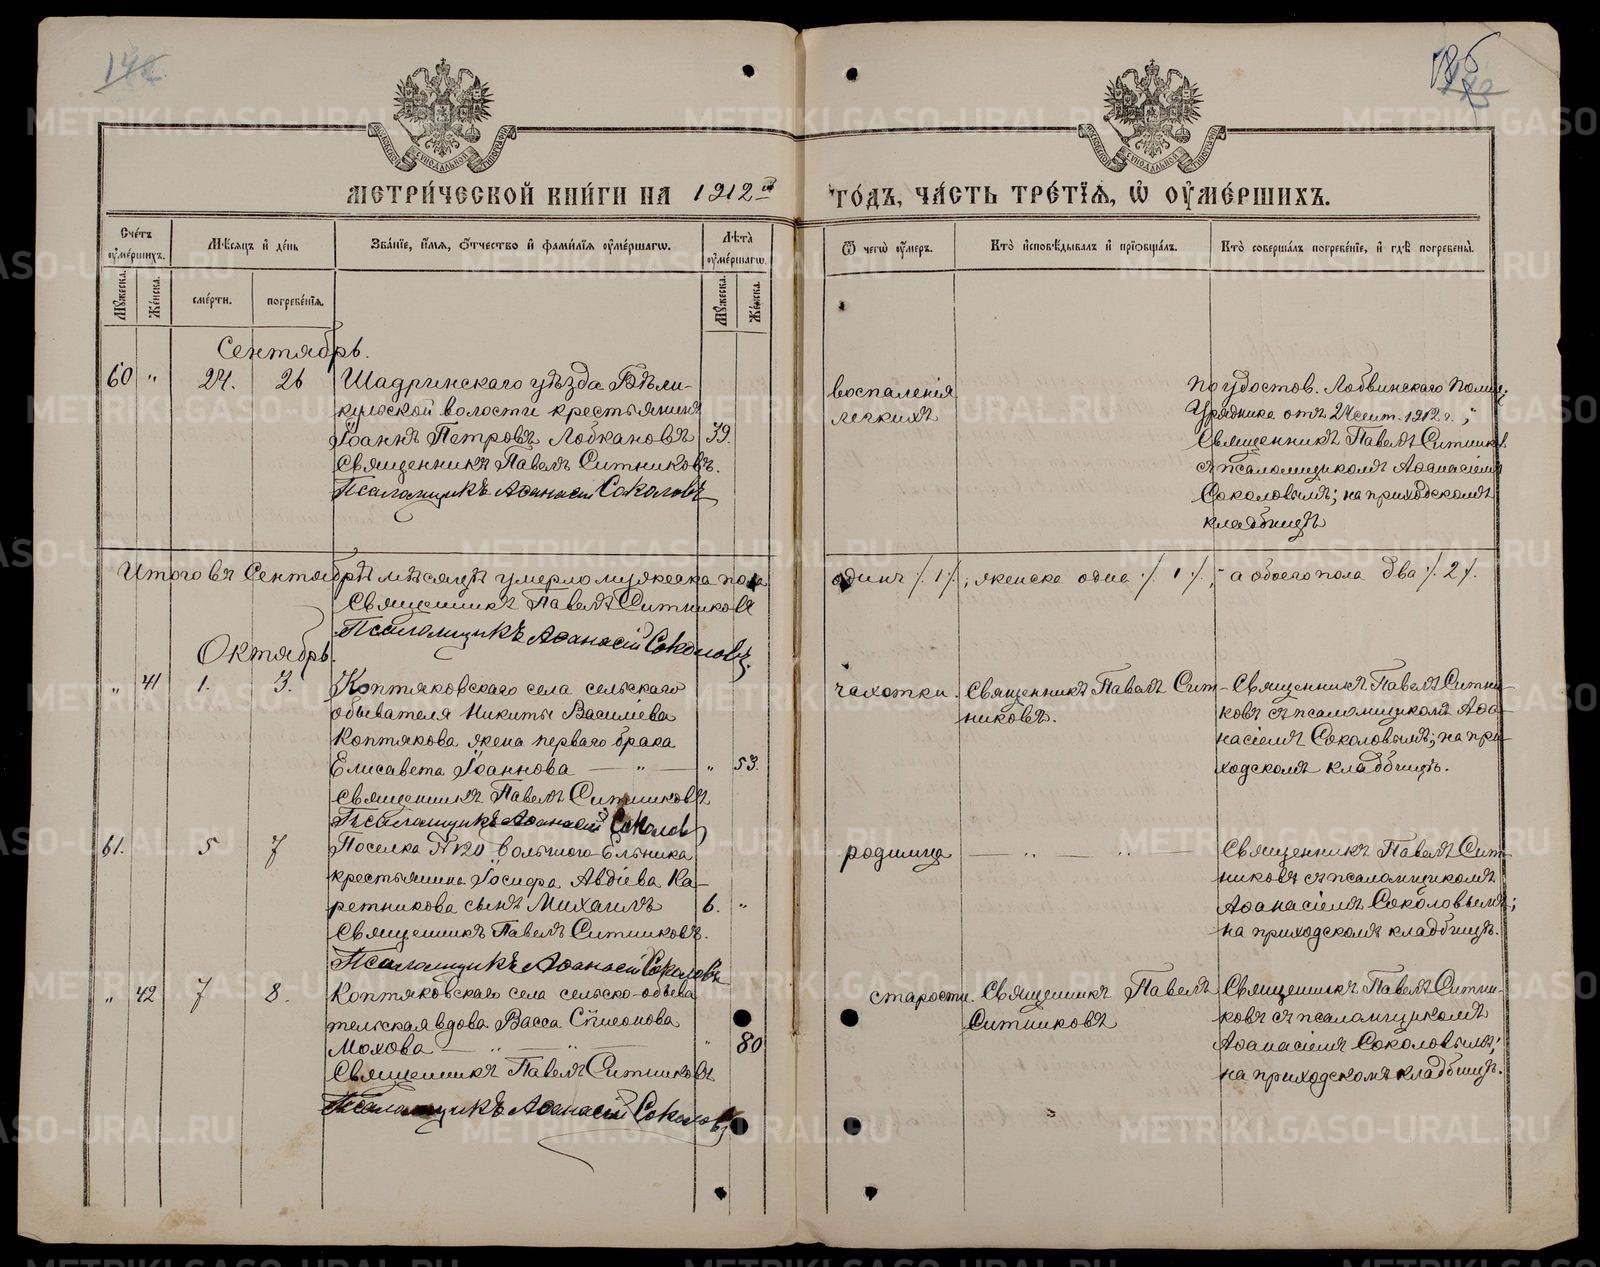 142
186
МЕТРИ́ЧЕСКОЙ КНИ́ГИ НА 1912й
ГО́ДЪ, ЧА́СТЬ ТРЕ́ТІѦ, Ѡ ОУМЕ́РШИХЪ.
Сче́тъ оуме́ршихъ.
Мѣ́сяцъ и де́нь
Зва́нїе, и́мя, о́тчество и фами́лїя оуме́ршагѡ.
Лѣ́та оуме́ршагѡ.
Ѿ чегѡ̀ оу́меръ.
Кто̀ и҆сповѣ́дывалъ и҆ прїѡбща́лъ.
Кто̀ соверша́лъ погребе́нїе, и҆ гдѣ̀ погребены̀.
Мꙋ́жеска.
Же́нска.
сме́рти.
погребе́нїя.
Мꙋ́жеска.
Же́нска.
Сентябрь.
60 " 24. 26 Шадринскаго уѣзда Бѣли-
кульской волости крестьянинъ
Іоаннъ Петровъ Лобкановъ 39.
Священникъ Павелъ Ситниковъ.
Псаломщикъ Аѳанасій Соколовъ
воспаленія
легкихъ
По удостов. Лобвинскаго Полиц.
Урядника отъ 24 сент. 1912 г.;
Священникъ Павелъ Ситников.
съ псаломщикомъ Аѳанасіемъ
Соколовымъ; на приходскомъ
кладбищѣ
Итого въ Сентябрѣ мѣсяцѣ умерло мужеска пола
одинъ /.1/., женска одна /. 1 /.; а обоего пола два /. 2 /.
Священникъ Павелъ Ситниковъ
Псаломщикъ Аѳанасій Соколовъ.
Октябрь.
" 41 1. 3. Коптяковскаго села сельскаго
обывателя Никиты Василіева
Коптякова жена перваго брака
Елисавета Іоаннова — " — " 53.
Священникъ Павелъ Ситниковъ
Псаломщикъ Аѳанасій Соколовъ
чахотки.
Священникъ Павелъ Сит-
никовъ.
Священникъ Павелъ Ситни-
ковъ съ псаломщикомъ Аѳа-
насіемъ Соколовымъ; на при-
ходскомъ кладбищѣ.
61. 5 7 Поселка № 120 Большого Ельника
крестьянина Іосифа Авдіева Ка-
ретникова сынъ Михаилъ 6. "
Священникъ Павелъ Ситниковъ.
Псаломщикъ Аѳанасій Соколовъ
родимца — " — " —
Священникъ Павелъ Сит-
никовъ съ псаломщикомъ
Аѳанасіемъ Соколовымъ;
на приходскомъ кладбищѣ.
" 42 7 8. Коптяковскаго села сельско-обыва
тельская вдова Васса Сѵмеонова
Мохова — " — " — " 80
Священникъ Павелъ Ситниковъ
Псаломщикъ Аѳанасій Соколовъ
старости.
Священникъ Павелъ
Ситниковъ
Священникъ Павелъ Ситни-
ковъ съ псаломщикомъ
Аѳанасіемъ Соколовымъ;
на приходскомъ кладбищѣ.
METRIKI.GASO-URAL.RU